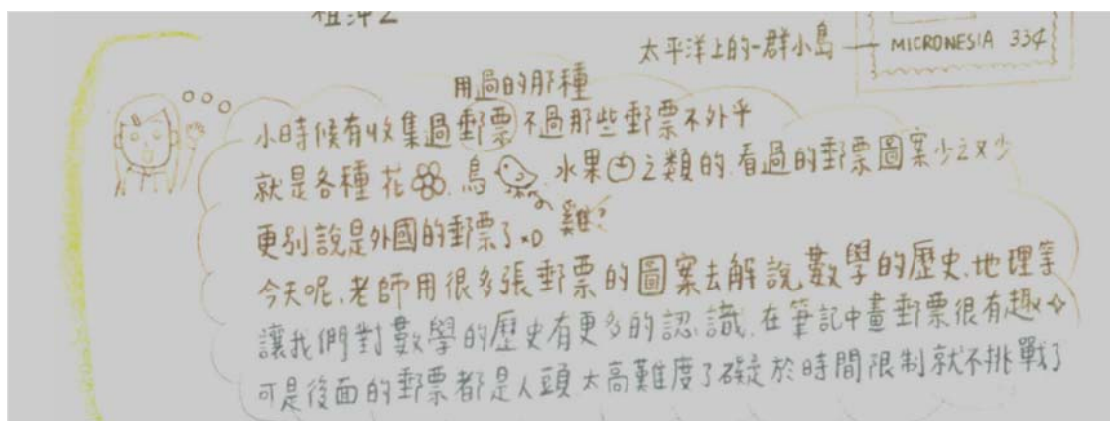 祖沖之
太平洋上的一群小島 — MICRONESIA 33¢
用過的那種
小時候有收集過郵票 不過那些郵票不外乎
就是各種花、鳥、水果之類的.看過的郵票圖案少之又少
雞?
更別說是外國的郵票了xD
今天呢.老師用很多張郵票的圖案去解說數學的歷史.地理等
讓我們對數學的歷史有更多的認識.在筆記中畫郵票很有趣
可是後面的郵票都是人頭.太高難度了礙於時間限制就不挑戰了